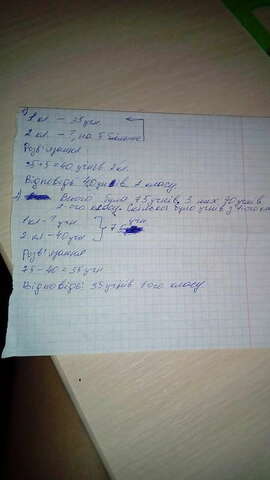 1)
1 кл. – 35 учн.
2 кл. – ?, на 5 більше
Розв'язання
35+5=40 учнів 2 кл.
Відповідь 40 учнів 2 класу
2) Всього було 75 учнів, з них 40 учнів
2-ого класу. Скільки було учнів з 1-ого кл
1 кл – ? учн
2 кл – 40 учн } 75 учн
Розв'язання
75-40=35 учн
Відповідь: 35 учнів 1-ого класу.